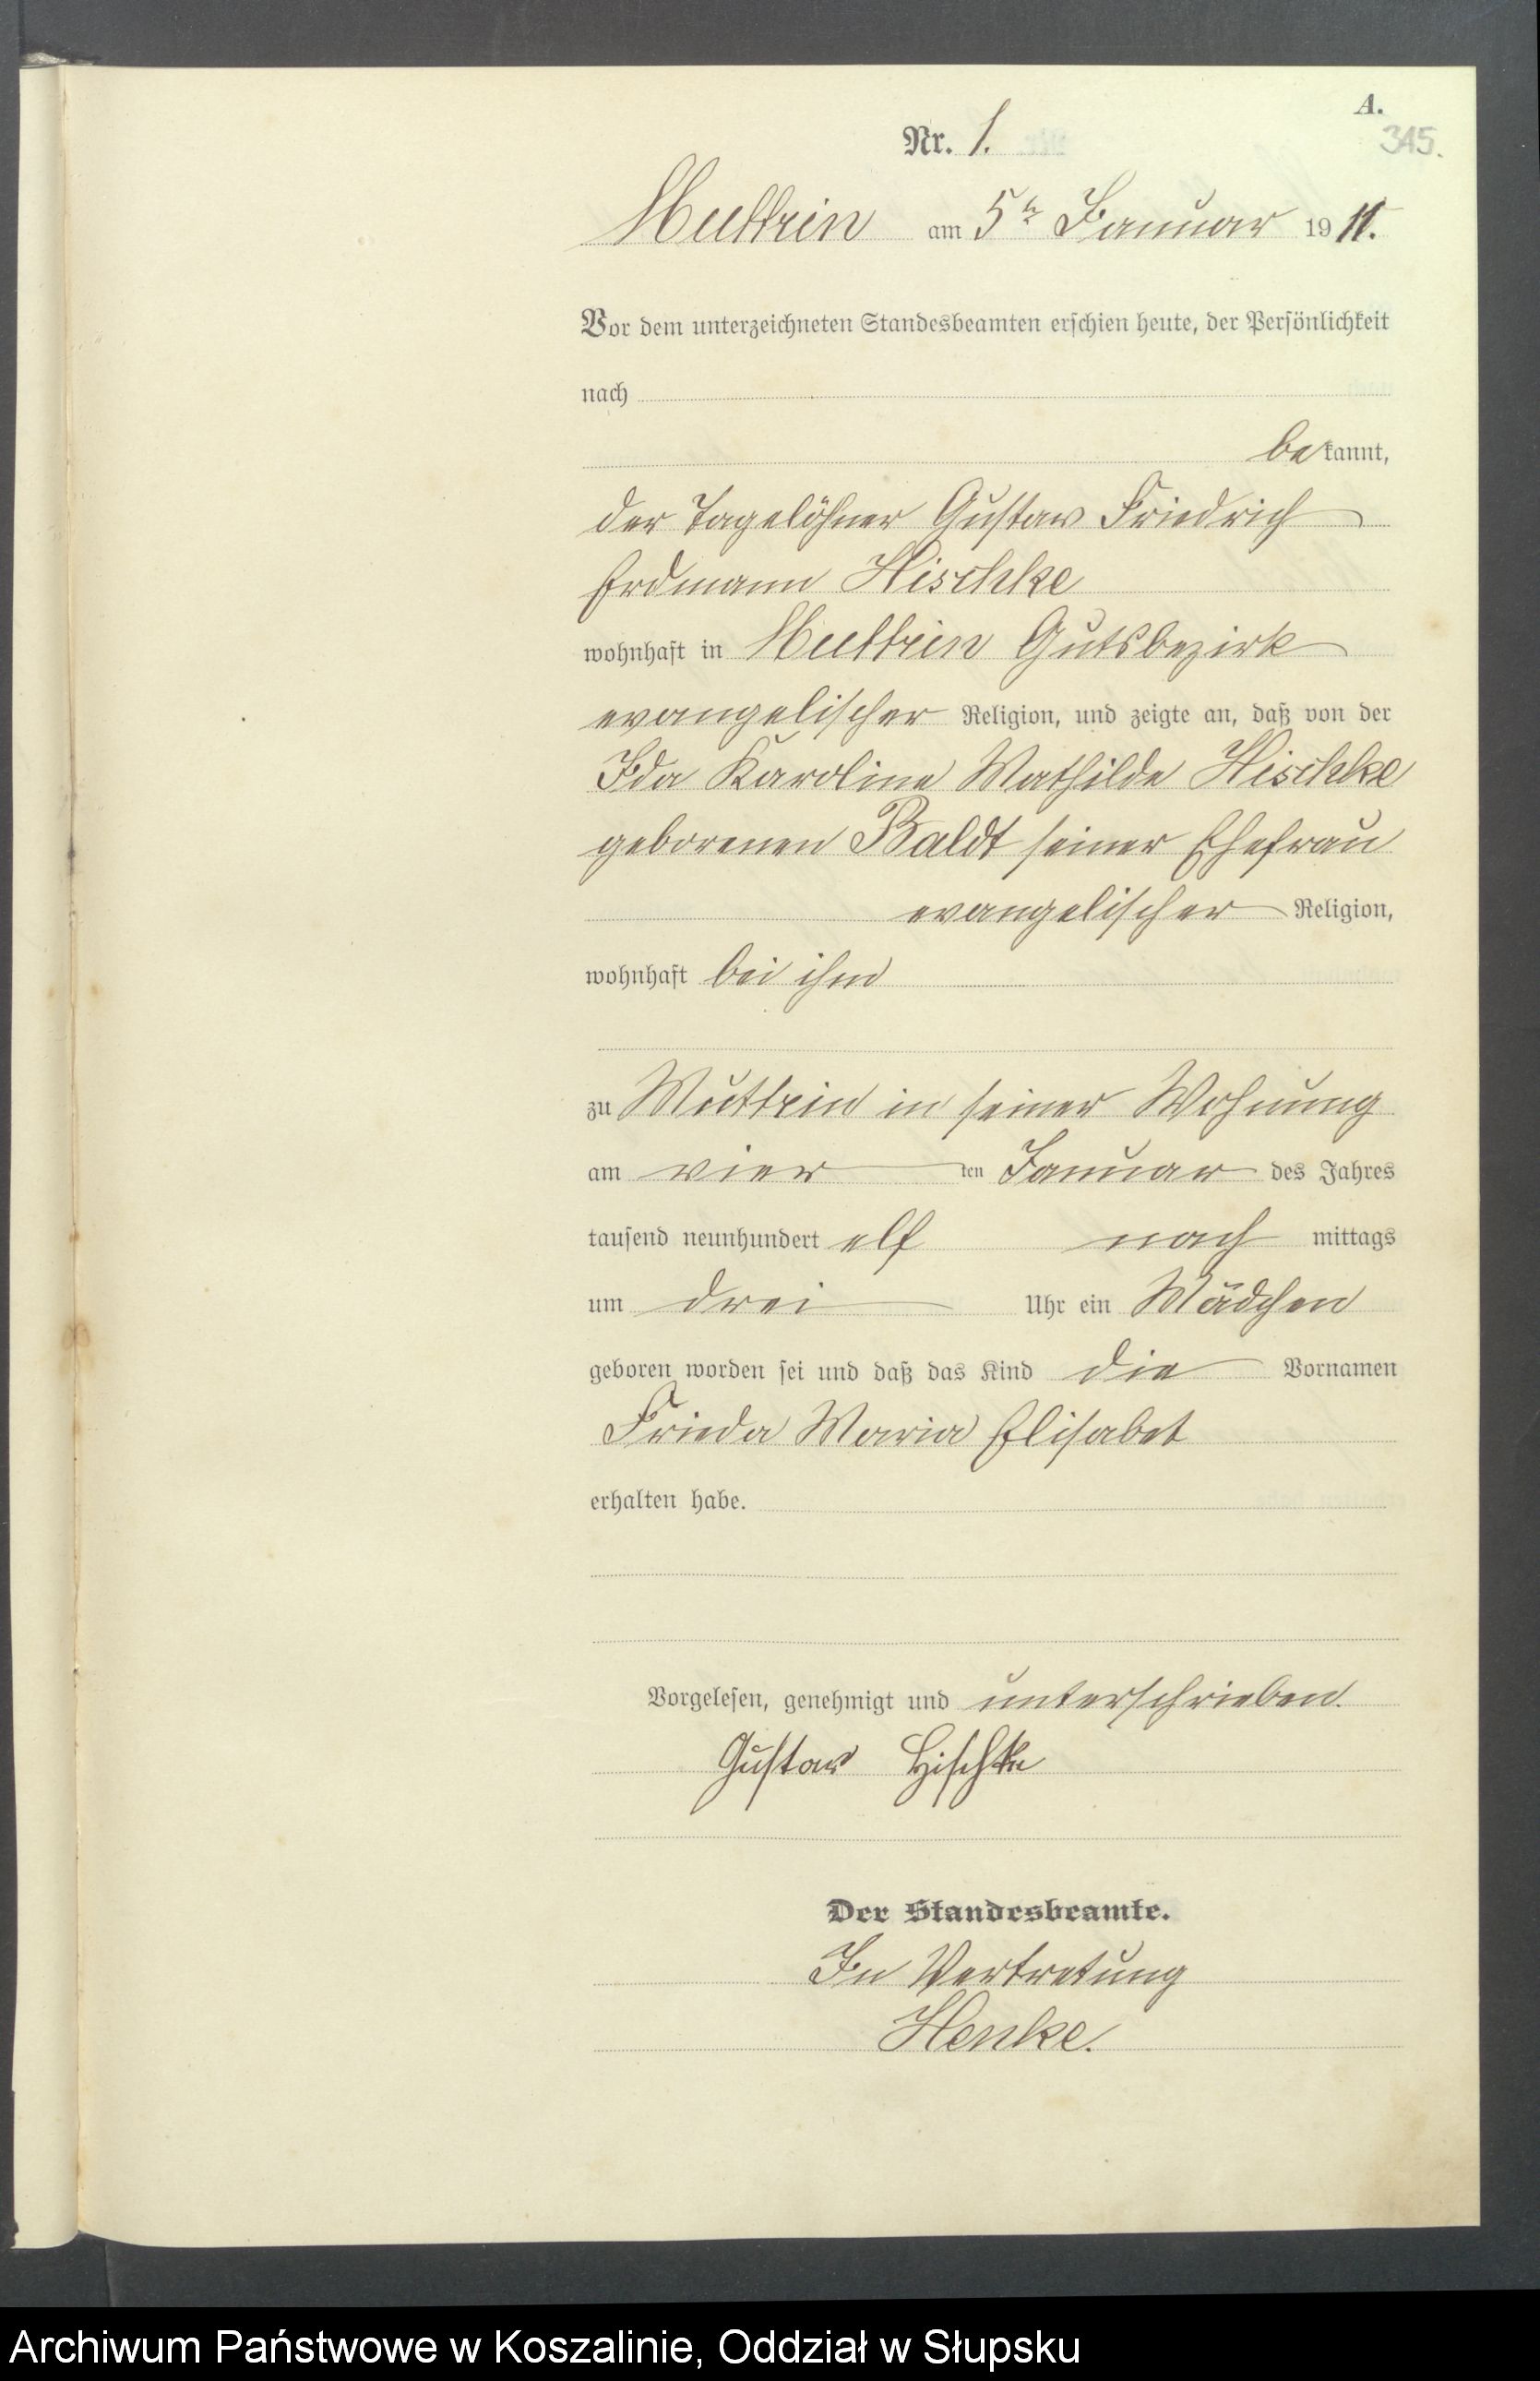 A.
345.
Nr. 1.
Muttrin am 5ten Januar 1911.
Vor dem unterzeichneten Standesbeamten erschien heute, der Persönlichkeit
nach
bekannt,
der Tagelöhner Gustav Friedrich
Erdmann Hischke
wohnhaft in Muttrin Gutsbezirk
evangelischer Religion, und zeigte an, daß von der
Ida Karoline Mathilde Hischke
geborenen Baldt seiner Ehefrau
evangelischer Religion,
wohnhaft bei ihm
zu Muttrin in seiner Wohnung
am vier ten Januar des Jahres
tausend neunhundert elf nach mittags
um drei Uhr ein Mädchen
geboren worden sei und daß das Kind die Vornamen
Frieda Maria Elisabet
erhalten habe.
Vorgelesen, genehmigt und unterschrieben.
Gustav Hischke
Der Standesbeamte.
In Vertretung
Henke.
Archiwum Państwowe w Koszalinie, Oddział w Słupsku